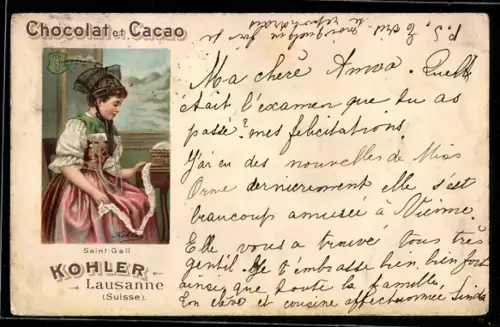 Chocolat et Cacao
Saint-Gall
KOHLER
Lausanne
(Suisse).
P.S.
Ma chère Anna. Quelle
était l'examen que tu as
passé? mes felicitations
J'ai eu des nouvelles de Miss
Orme dernierement elle s'est
beaucoup amusée à Vienne.
Elle vous a trouvé tous très
gentil. Je t'embrasse bien bien fort
ainsi que toute la famille,
et cousine affectionnée Linda